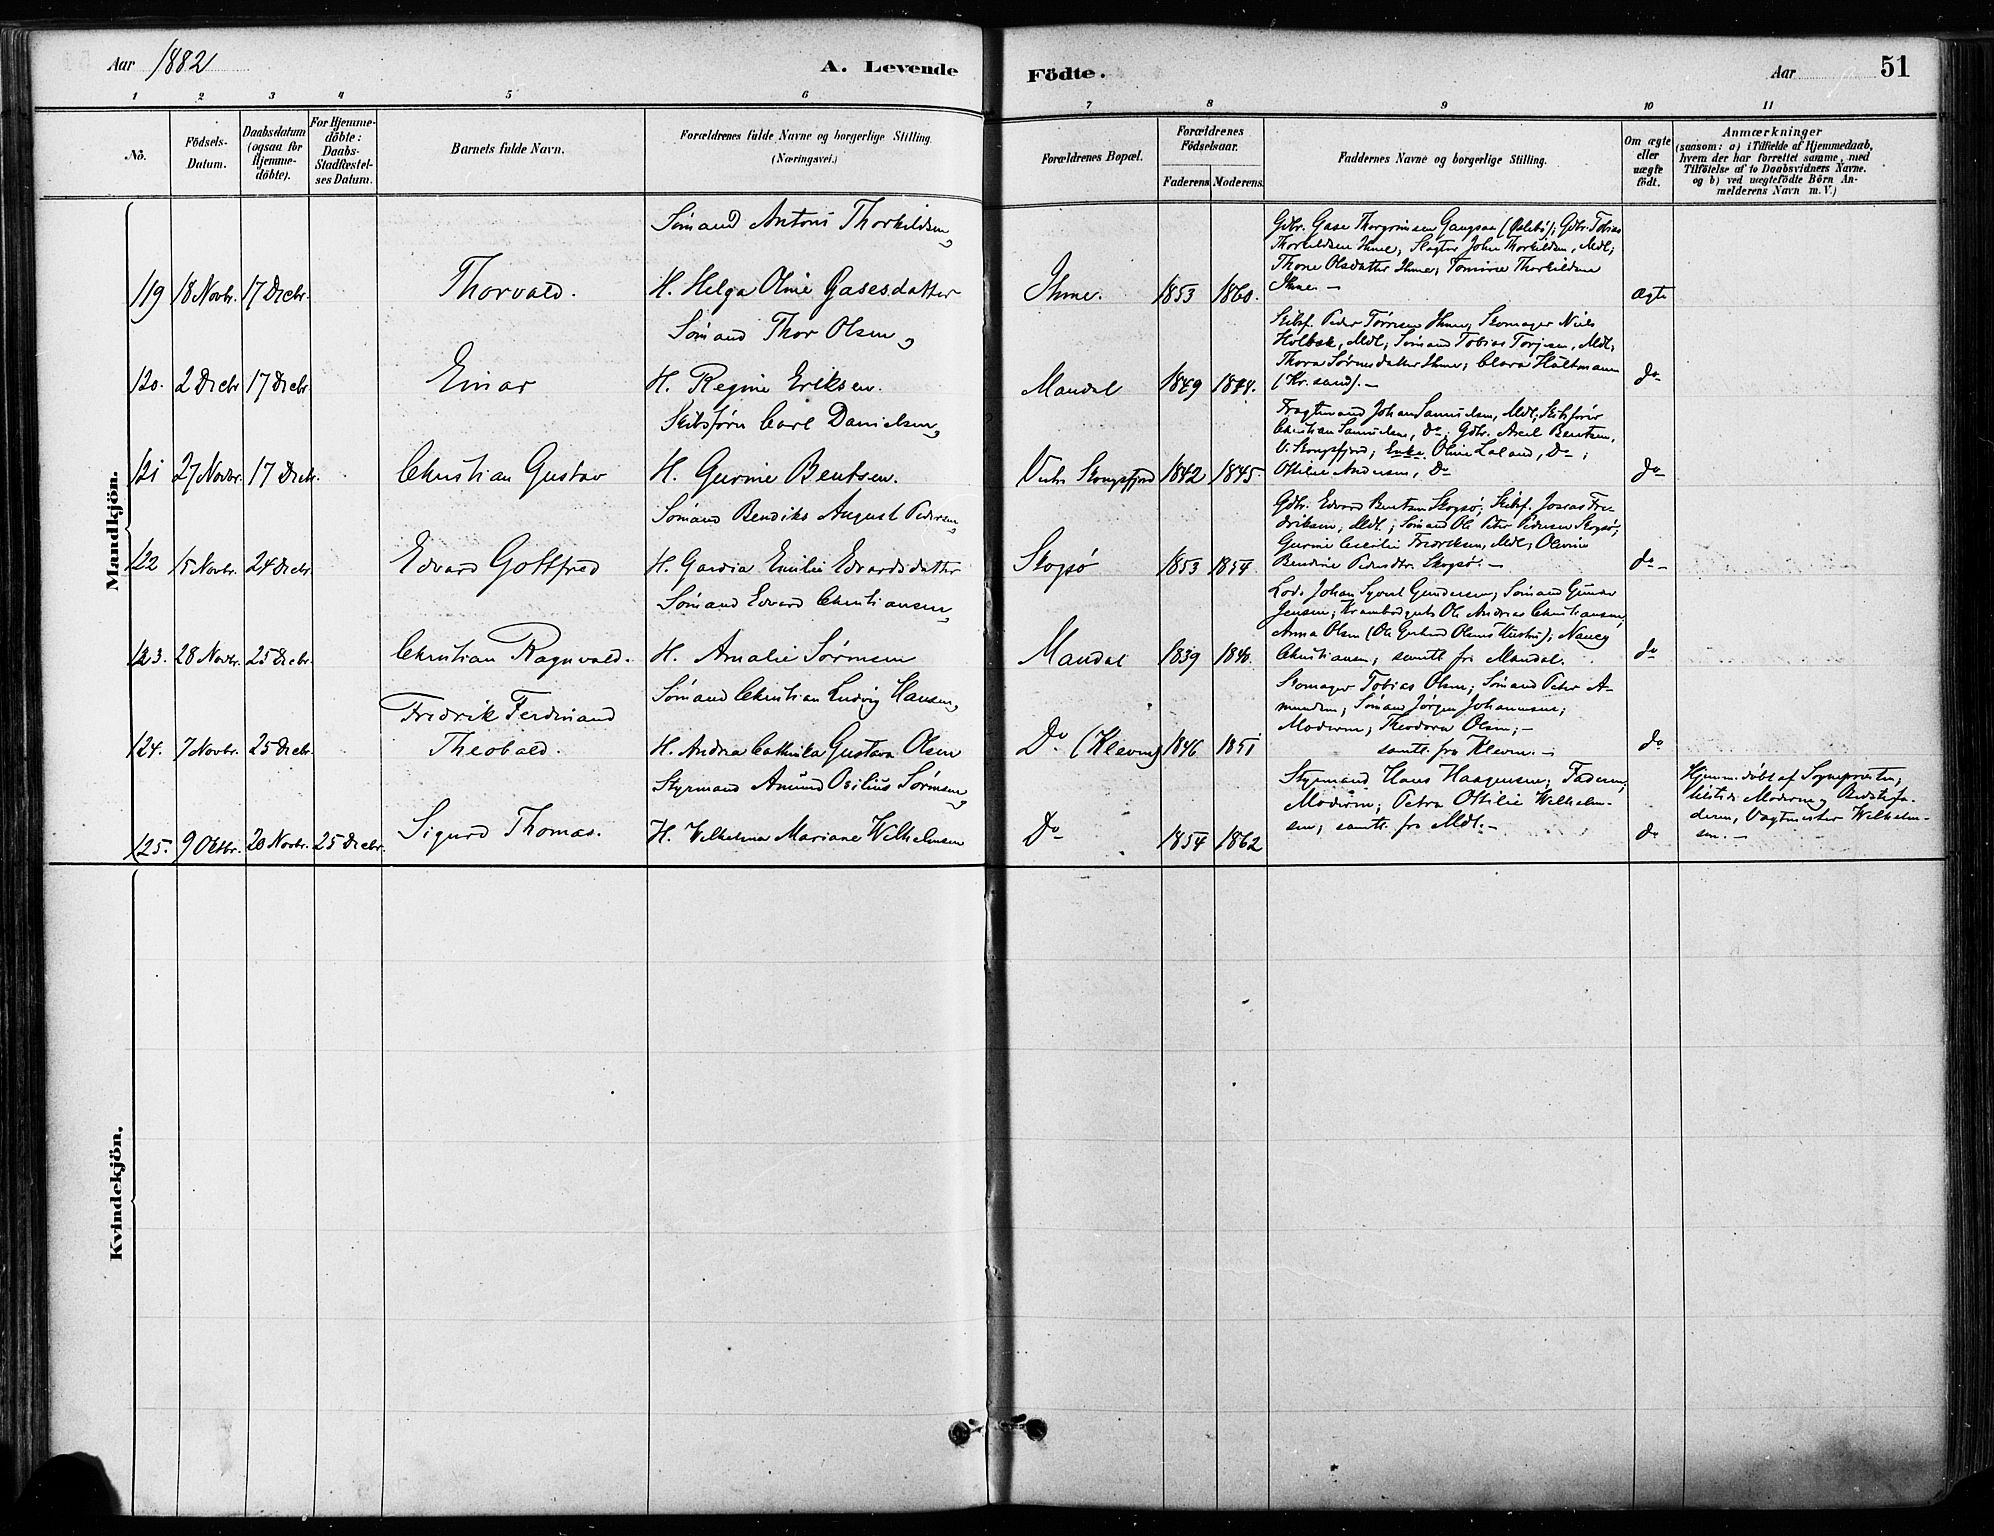 Aar 1882
A. Levende
Födte.
Aar
51
1 2 3 4 5 6 7 8 9 10 11
No.
Födsels-
Datum.
Daabsdatum
(ogsaa for
Hjemme-
döbte).
For Hjemme-
döbte:
Daabs-
Stadfæstel-
ses Datum.
Barnets fulde Navn.
Forældrenes fulde Navne og borgerlige Stilling
(Næringsvei.)
Forældrenes Bopæl.
Forældrenes
Födselsaar.
Faderens. Moderens.
Faddernes Navne og borgerlige Stilling.
Om ægte
eller
uægte
födt.
Anmærkninger
(saasom: a) i Tilfælde af Hjemmedaab,
hvem der har forrettet samme, med
Tilföielse af to Daabsvidners Navne.
og b) ved uægtefödte Börn An-
melderens Navn m. V.)
Mandkjön.
Sömand Antoni Thorkildsen,
Gdbr. Gase Thorgrimsen Gangsaa (Øslebö); Gdbr. Tobias
Thorkildsen Ihme; Slagter John Thorkildsen, Mdl;
Thone Olsdatter Ihme; Tomine Thorkildsen
119 18 Novbr. 17 Decbr. Thorvald. H. Helga Oline Gasesdatter Ihme. 1853 1860. Ihme. — ægte
Sömand Thor Olsen,
Skibsf. Peder Törresen Ihme; Skomager Niels
Holbæk, Mdl; Sömand Tobias Torjesen, Mdl;
Thora Sörensdatter Ihme; Clara Hultmann
120. 2 Decbr 17 Decbr. Einar H. Regine Eriksen. Mandal 1849 1844. (Kr.sand). — do
Skibsförer Carl Danielsen,
Fragtemand Johan Samuelsen, Mdl; Skibsförer
Christian Samuelsen, Do; Gdbr. Axel Bentsen,
V. Skongsfjord; Enke Oline Laland, Do;
121 27 Novbr. 17 Decbr. Christian Gustav H. Gurine Bentsen. Vestre Skongsfjord 1842 1845. Ottilie Andersen, Do do
Sömand Bendiks August Pedersen,
Gdbr. Edvard Bentsen Skogsö; Skibsf. Joseas Fre-
driksen, Mdl.; Sömand Ole Peter Pedersen Skogsö;
Gurine Cecilie Fredriksen, Mdl; Olevine
122 15 Novbr. 24 Decbr. Edvard Gottfred H. Gardia Emilie Edvardsdatter Skogsö 1853 1854 Bendine Pedersdtr. Skogsö. — do
Sömand Edvard Christiansen,
Lods Johan Syvert Gundersen; Sömand Gunvar
Jensen; Krambodgut Ole Andreas Christiansen,
Anna Olsen (Ole Gerhard Olsens Hustru); Nancy
123. 28 Novbr. 25 Decbr. Christian Ragnvald. H. Amalie Sörensen Mandal 1839 1840. Christiansen, samtl. fra Mandal. do
Sömand Christian Ludvig Hansen,
Skomager Tobias Olsen; Sömand Peter A-
mundsen; Sömand Jörgen Johannesen;
Fredrik Ferdinand
Moderen; Theodora Olsen; —
124. 7 Novbr. 25 Decbr. Theobald. H. Andrea Cathinka Gustava Olsen Do (Kleven) 1846 1851 samtl. fra Kleven. — do
Styrmand Amund Osilius Sörensen,
Styrmand Hans Haagensen; Faderen;
Moderen; Petra Ottilie Wilhelm-
Hjemmedöbt af Sognepresten;
tilstede Moderen og Bedstefa-
deren, Vagtmester Wilhelm-
125. 9 Oktbr. 20 Novbr. 25 Decbr. Sigurd Thomas. H. Wilhelmine Mariane Wilhelmsen Do 1854 1862 sen; samtl. fra Mdl. — do sen. —
Kvindekjön.